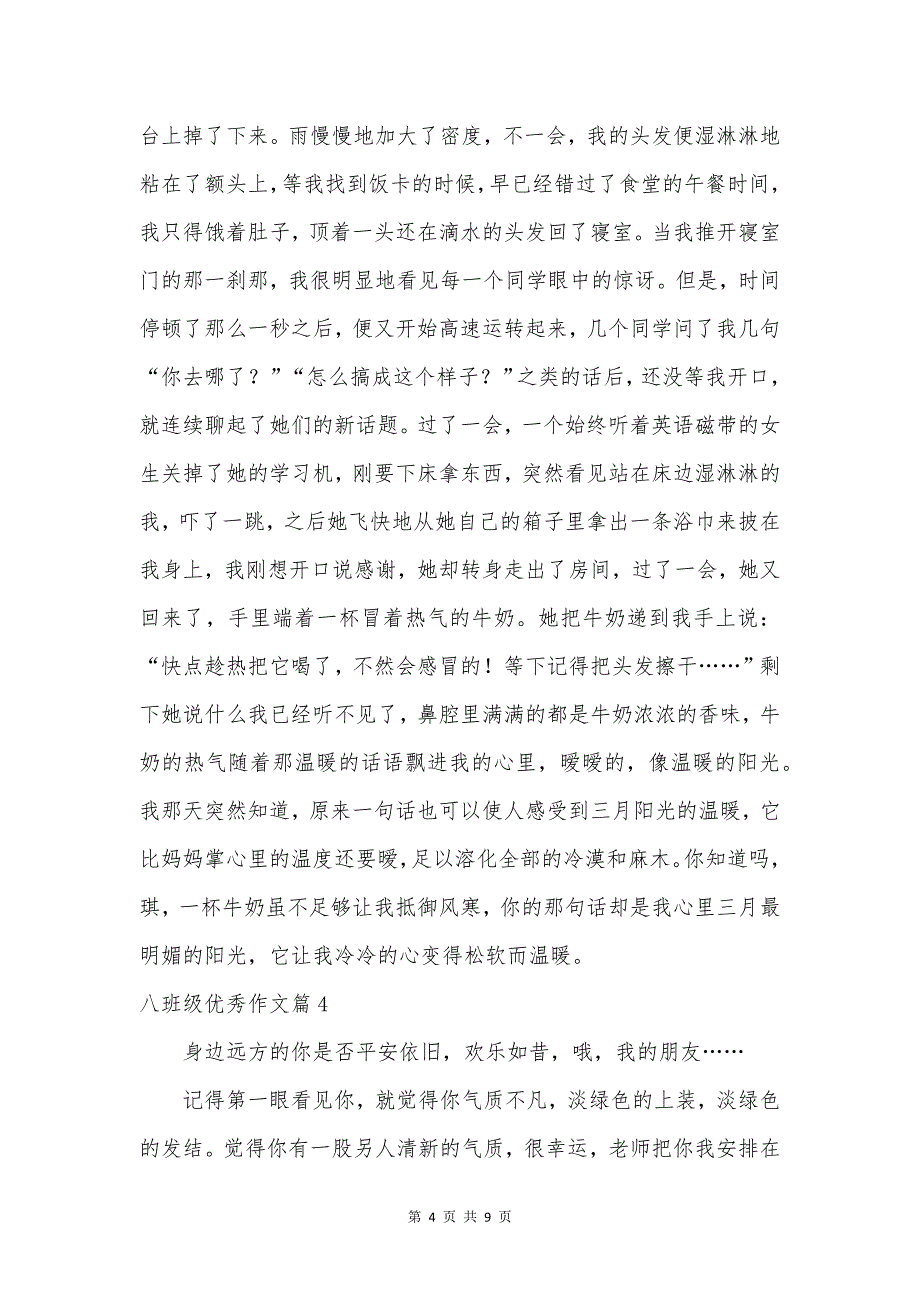 台上掉了下来。雨慢慢地加大了密度，不一会，我的头发便湿淋淋地
粘在了额头上，等我找到饭卡的时候，早已经错过了食堂的午餐时间，
我只得饿着肚子，顶着一头还在滴水的头发回了寝室。当我推开寝室
门的那一刹那，我很明显地看见每一个同学眼中的惊讶。但是，时间
停顿了那么一秒之后，便又开始高速运转起来，几个同学问了我几句
“你去哪了？”“怎么搞成这个样子？”之类的话后，还没等我开口，
就连续聊起了她们的新话题。过了一会，一个始终听着英语磁带的女
生关掉了她的学习机，刚要下床拿东西，突然看见站在床边湿淋淋的
我，吓了一跳，之后她飞快地从她自己的箱子里拿出一条浴巾来披在
我身上，我刚想开口说感谢，她却转身走出了房间，过了一会，她又
回来了，手里端着一杯冒着热气的牛奶。她把牛奶递到我手上说：
“快点趁热把它喝了，不然会感冒的！等下记得把头发擦干……”剩
下她说什么我已经听不见了，鼻腔里满满的都是牛奶浓浓的香味，牛
奶的热气随着那温暖的话语飘进我的心里，暧暧的，像温暖的阳光。
我那天突然知道，原来一句话也可以使人感受到三月阳光的温暖，它
比妈妈掌心里的温度还要暧，足以溶化全部的冷漠和麻木。你知道吗，
琪，一杯牛奶虽不足够让我抵御风寒，你的那句话却是我心里三月最
明媚的阳光，它让我冷冷的心变得松软而温暖。
八班级优秀作文篇 4
身边远方的你是否平安依旧，欢乐如昔，哦，我的朋友……
记得第一眼看见你，就觉得你气质不凡，淡绿色的上装，淡绿色
的发结。觉得你有一股另人清新的气质，很幸运，老师把你我安排在
第 4 页 共 9 页